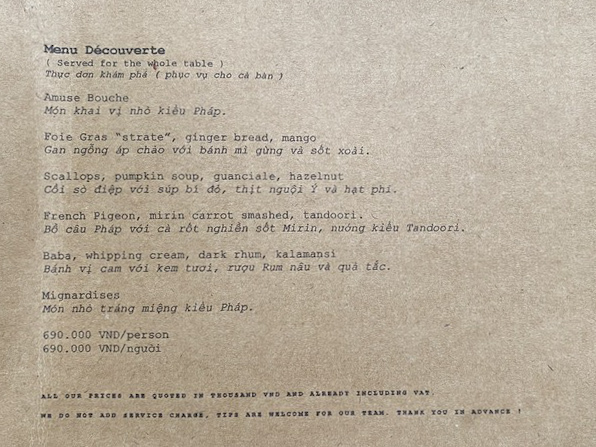 Menu Découverte
( Served for the whole table )
Thực đơn khám phá ( phục vụ cho cả bàn )
Amuse Bouche
Món khai vị nhỏ kiểu Pháp.
Foie Gras “strate”, ginger bread, mango
Gan ngỗng áp chảo với bánh mì gừng và sốt xoài.
Scallops, pumpkin soup, guanciale, hazelnut
Cồi sò điệp với súp bí đỏ, thịt nguội Ý và hạt phỉ.
French Pigeon, mirin carrot smashed, tandoori.
Bồ câu Pháp với cà rốt nghiền sốt Mirin, nướng kiểu Tandoori.
Baba, whipping cream, dark rhum, kalamansi
Bánh vị cam với kem tươi, rượu Rum nâu và quả tắc.
Mignardises
Món nhỏ tráng miệng kiểu Pháp.
690.000 VND/person
690.000 VND/người
ALL OUR PRICES ARE QUOTED IN THOUSAND VND AND ALREADY INCLUDING VAT.
WE DO NOT ADD SERVICE CHARGE, TIPS ARE WELCOME FOR OUR TEAM. THANK YOU IN ADVANCE !